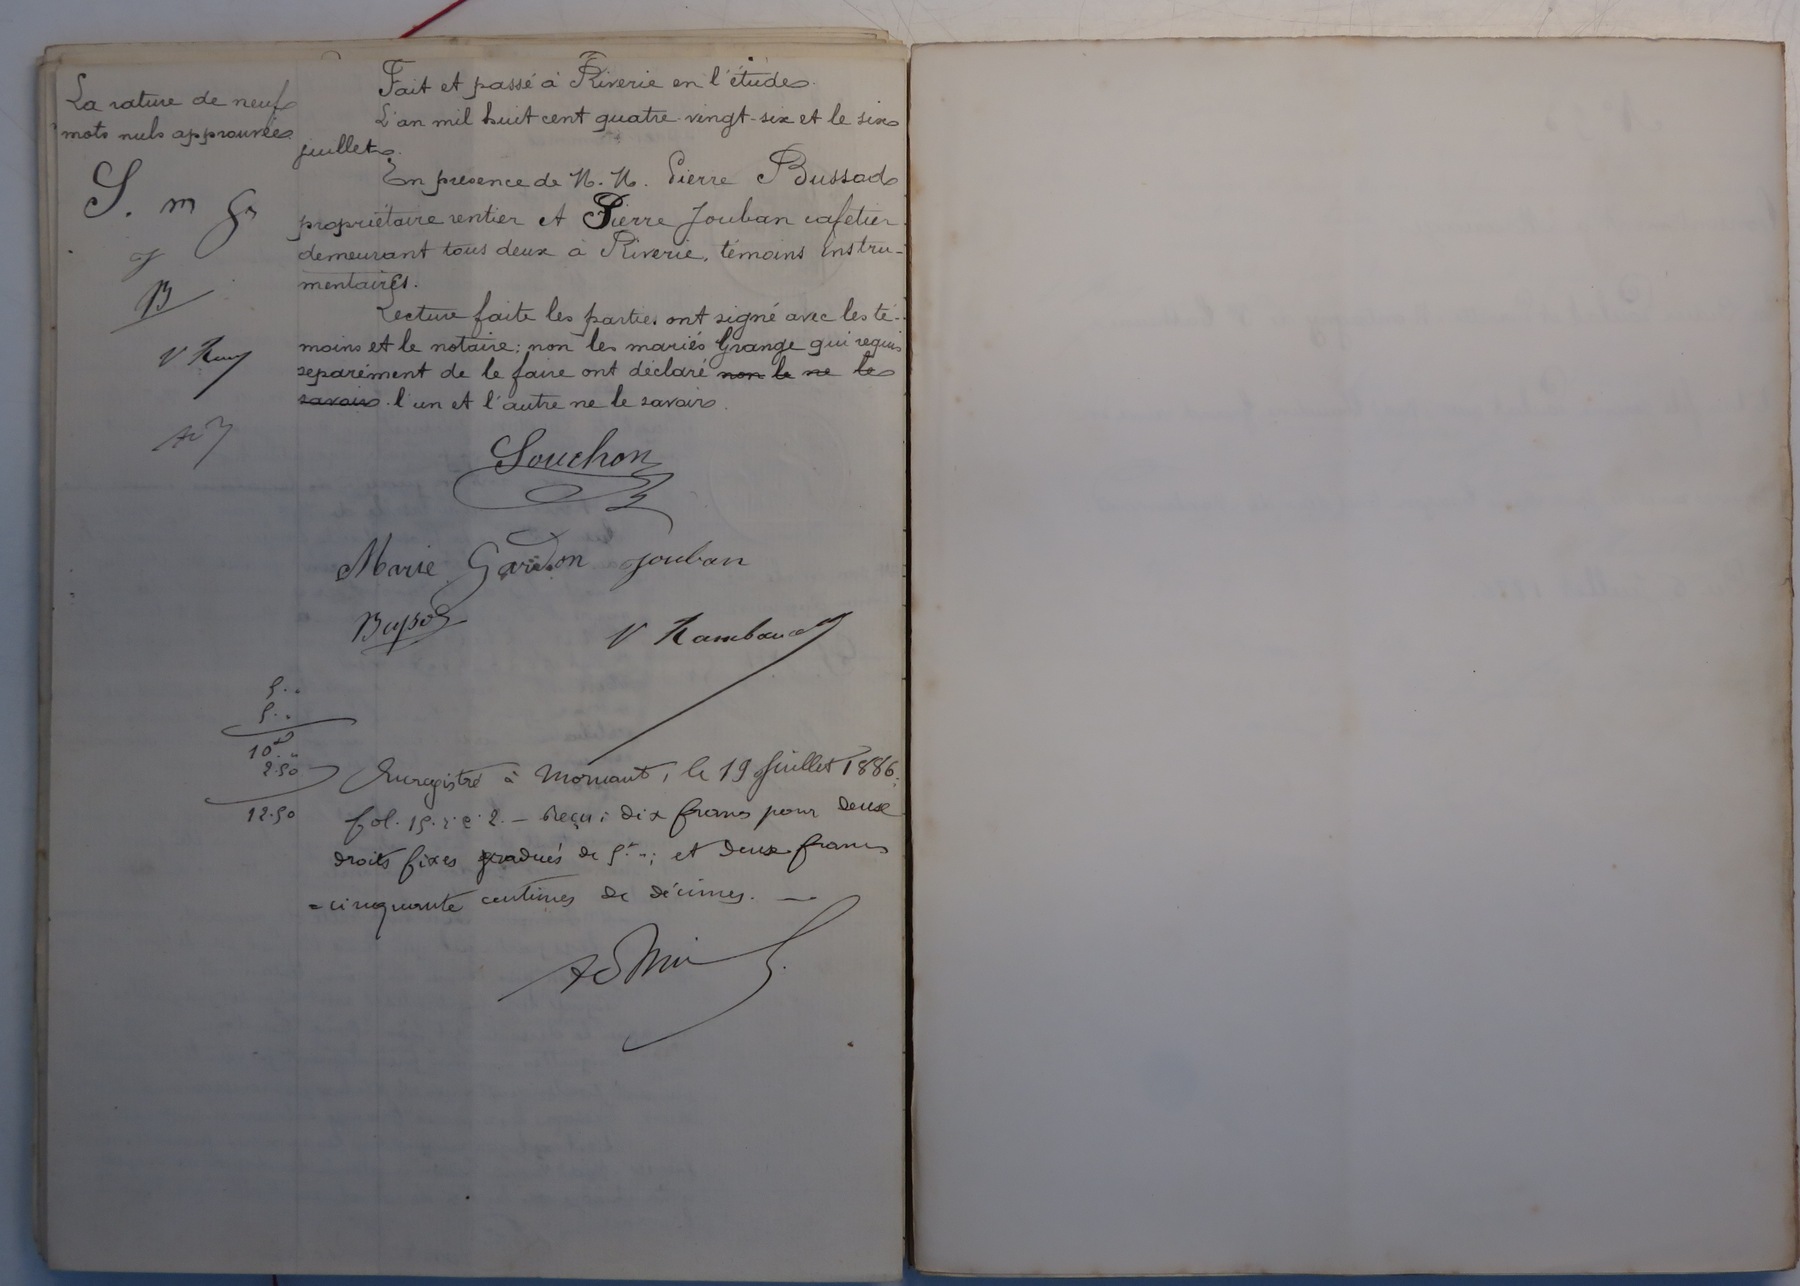 La rature de neuf
mots nuls approuvée
S. m G
J
B
V Ram
Fait et passé à Riverie en l'étude.
L'an mil huit cent quatre-vingt-six et le six
juillet.
En présence de M. M. Pierre Bussod
propriétaire rentier et Pierre Jouban cafetier
demeurant tous deux à Riverie, témoins instru-
mentaires.
Lecture faite les parties ont signé avec les té-
moins et le notaire; non les mariés Grange qui requis
separément de le faire ont déclaré non le ne le
savoir l'un et l'autre ne le savoir.
Souchon
Marie Gardon Jouban
V Rambaud
5..
5..
10..
2.50
12.50
Enregistré à Mornant, le 19 Juillet 1886.
fol. 15. r. c. 2. — Reçu: dix francs pour deux
droits fixes gradués de 5f..; et deux francs
cinquante centimes de décimes. —